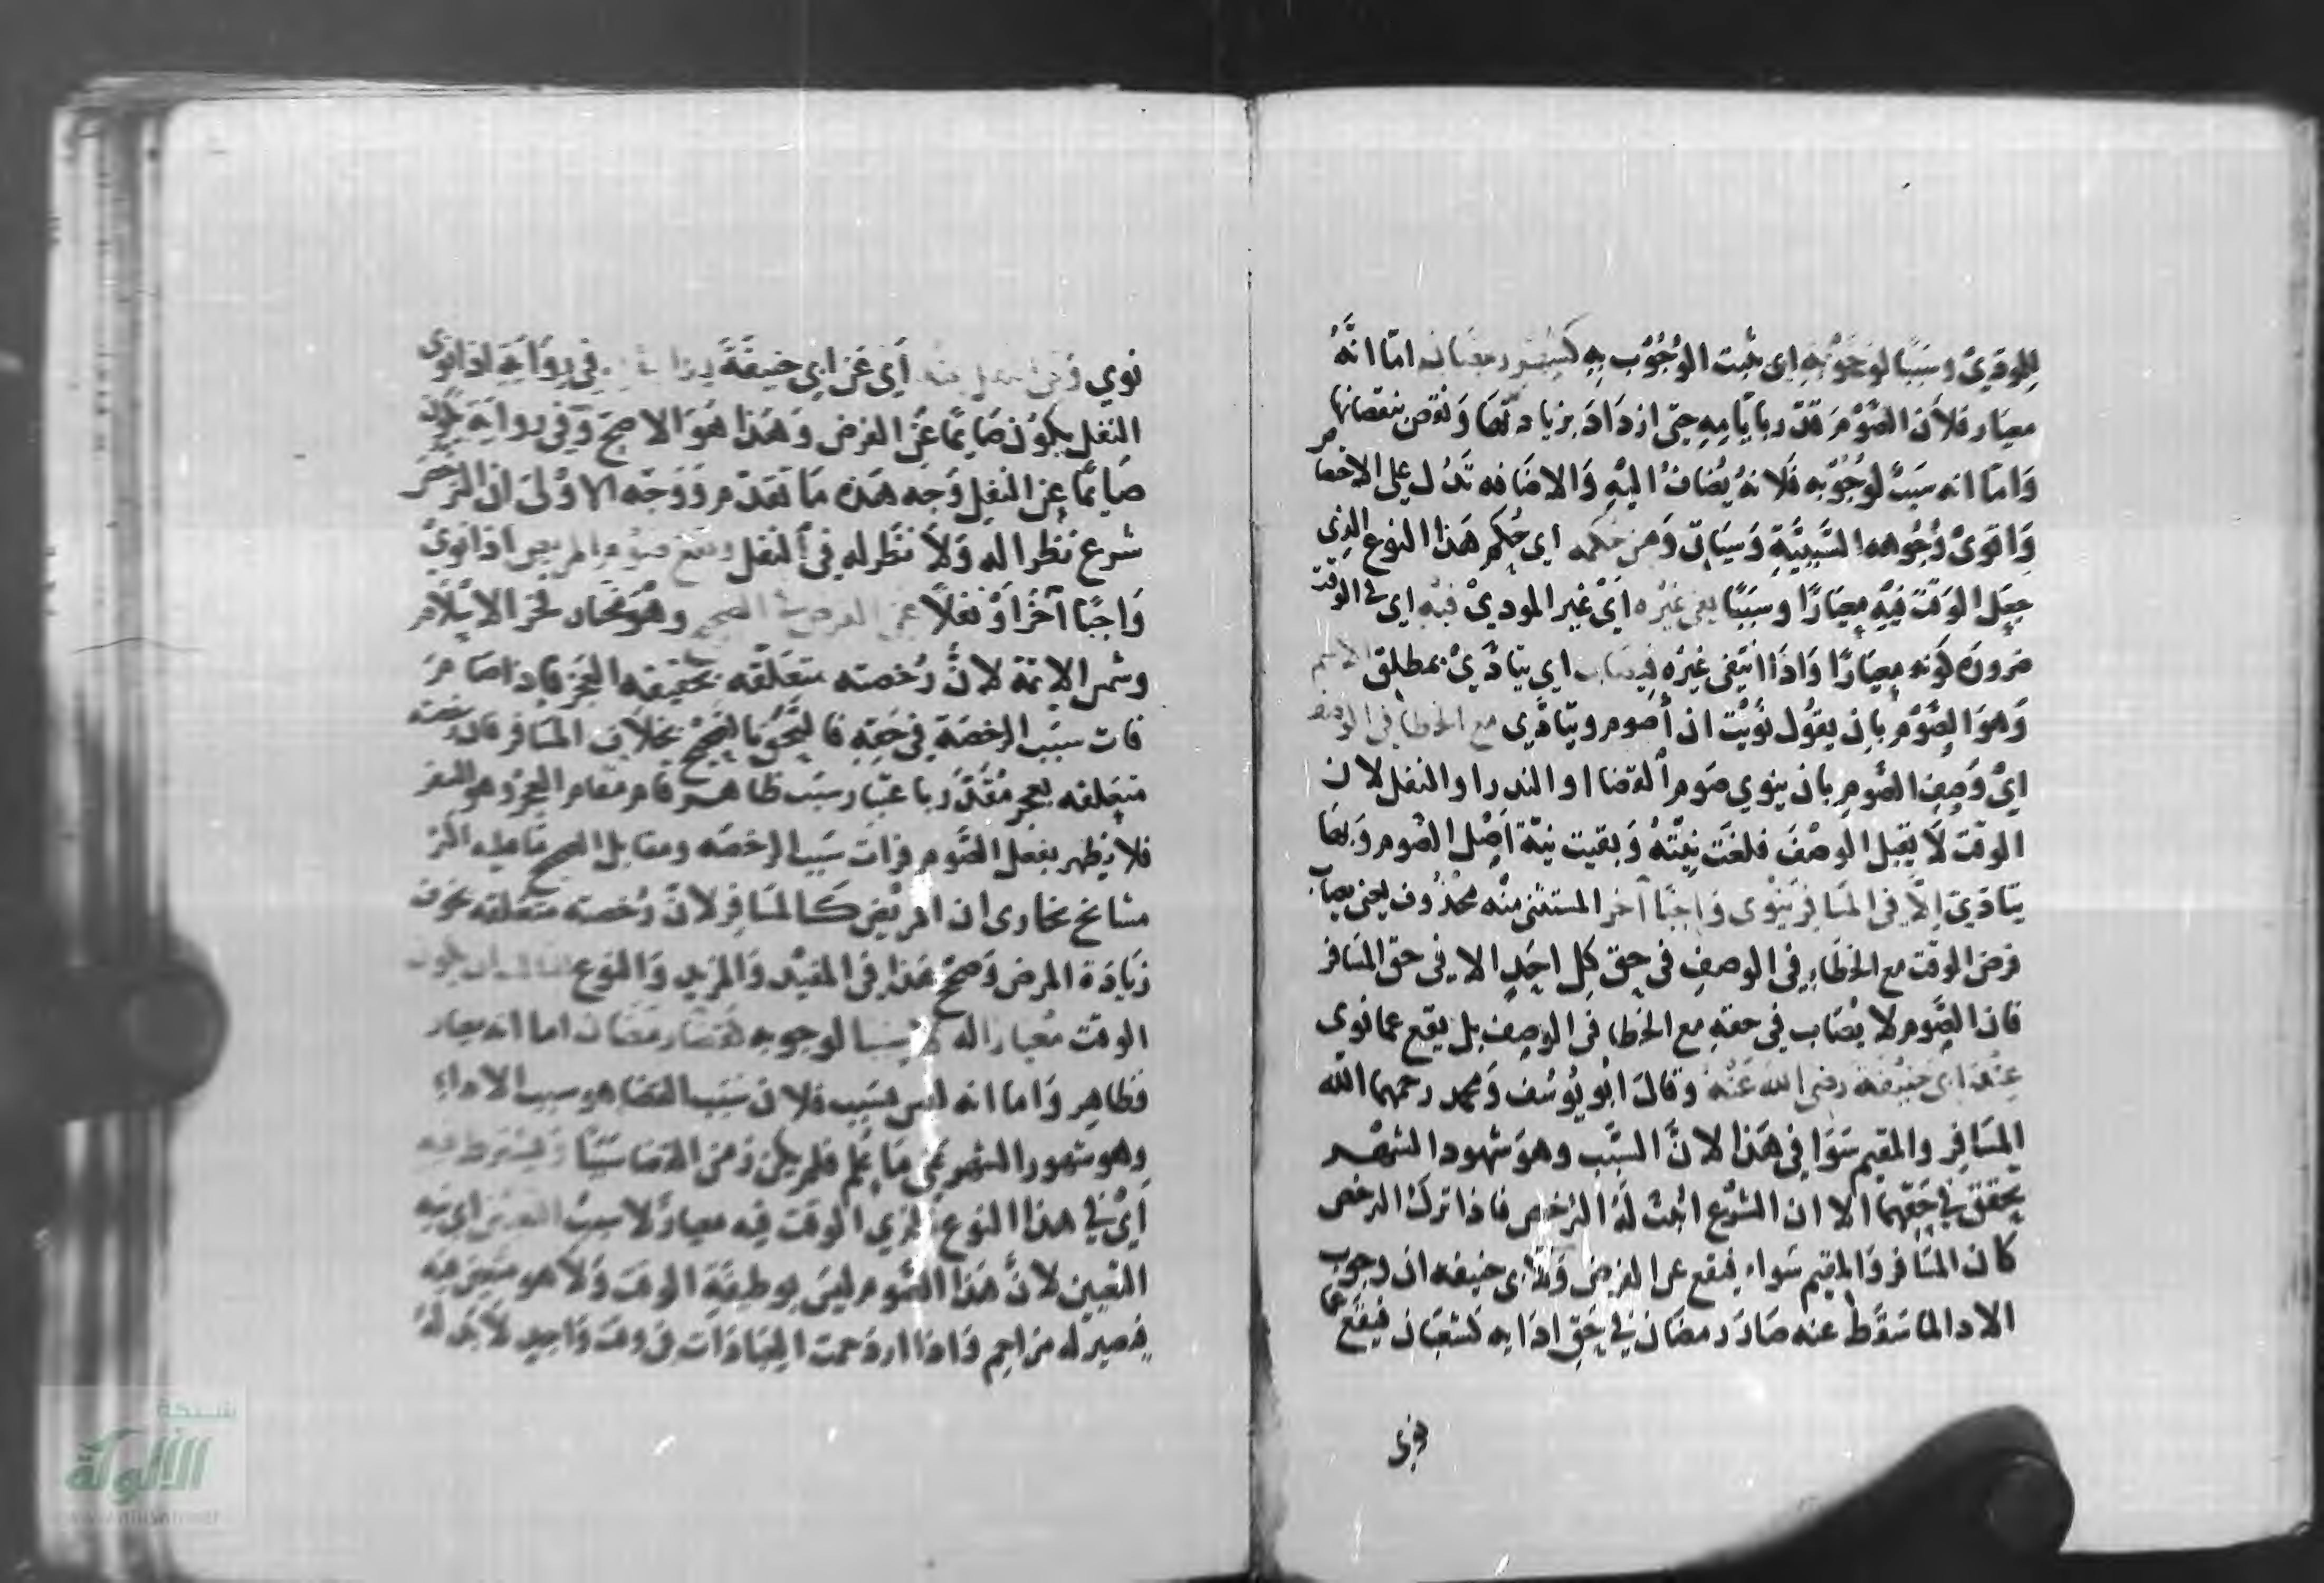 للمودي وسببا لوجوبه اي ثبت الوجوب به كشهر رمضان اما انه
معيار فلان الصوم قدر بايامه حتى ازداد بزيادتها ونقص بنقصانها
واما انه سبب لوجوبه فلانه يضاف اليه والاضافه تدل على الاختصا
واقوى وجوهه السببية وسياتي ومن حكمه اي حكم هذا النوع الذي
جعل الوقت فيه معيارا وسببا نفي غيره اي غير المودي فيه اي في الوقت
ضروره كونه معيارا واذا انتفى غيره فيصاب اي يتادى بمطلق الاسم
وهو الصوم بان يقول نويت ان اصوم ويتادي مع الخطا في الوصف
اي وصف الصوم بان ينوي صوم القضا او النذر او النفل لان
الوقت لا يقبل الوصف فلغت نيته وبقيت نية اصل الصوم وبها
يتادي الا في المسافر ينوى واجبا آخر المستثنى منه محذوف يعني يصاب
فرض الوقت مع الخطاء في الوصف في حق كل احد الا في حق المسافر
فان الصوم لا يصاب في حقه مع الخطا في الوصف بل يقع عما نوى
عند ابي حنيفة رضي الله عنه وقال ابو يوسف ومحمد رحمهما الله
المسافر والمقيم سوا في هذا لان السبب وهو شهود الشهر
يحقق في حقهما الا ان الشرع اثبت له الترخص فاذا ترك الترخص
كان المسافر والمقيم سواء فيقع عن الفرض ولابي حنيفه ان وجوب
الادا لما سقط عنه صار رمضان في حق ادايه كشعبان فيقع عما
نوى
نوي وفي النفل عنه اي عن ابي حنيفة في رواية اذا نوى
النفل يكون صايما عن الفرض وهذا هو الاصح وفي رواية يكون
صايما عن النفل وجه هذه ما تقدم ووجه الاولى ان الترخص
شرع نظرا له ولا نظر له في النفل ويقع صوم المريض اذا نوى
واجبا آخر او نفلا عن الفرض في الصحيح وهو مختار فخر الاسلام
وشمس الايمة لان رخصته متعلقه بحقيقه العجز فاذا صام
فات سبب الرخصة في حقه فالتحق بالصحيح بخلاف المسافر فان رخصته
متعلقه بعجز مقدر باعتبار سبب ظاهر قام مقام العجز وهو السفر
فلا يظهر بفعل الصوم فوات سبب الرخصه ومقابل الصحيح ما عليه اكثر
مشايخ بخارى ان المريض كالمسافر لان رخصته متعلقه بخوف
زيادة المرض وصح هذا في المفيد والمزيد والنوع الثالث ان يكون
الوقت معيارا له لا سببا لوجوبه كقضا رمضان اما انه معيار
فظاهر واما انه ليس بسبب فلان سبب القضا هو سبب الاداء
وهو شهود الشهر على ما علم فلم يكن زمن القضا سببا ويشترط فيه
اي في هذا النوع الذي الوقت فيه معيار لا سبب التعيين اي نية
التعيين لان هذا الصوم ليس بوظيفة الوقت ولا هو متعين فيه
فيصير له مزاحم واذا ازدحمت العبادات في وقت واحد لا بد له
شبكة
الألوكة